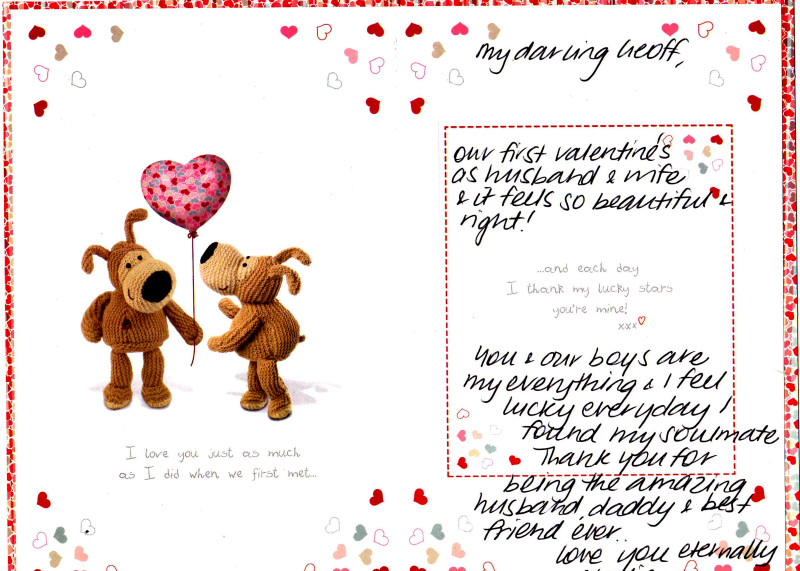 I love you just as much
as I did when we first met...
my darling Geoff,
our first valentine's
as husband & wife
& it feels so beautiful &
right!
...and each day
I thank my lucky stars
you're mine!
xxx
You & our boys are
my everything & I feel
lucky everyday I
found my soulmate
Thank you for
being the amazing
husband, daddy & best
friend ever..
love you eternally